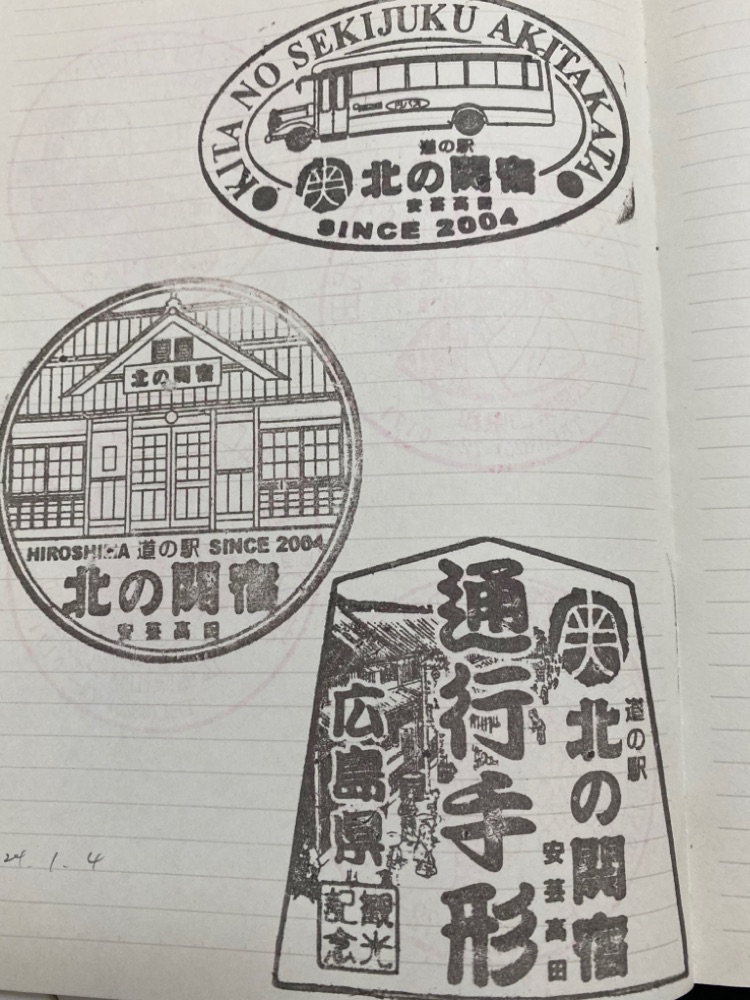 KITA NO SEKIJUKU AKITAKATA
道の駅
北の関宿
安芸高田
SINCE 2004
北の関宿
HIROSHIMA 道の駅 SINCE 2004
北の関宿
安芸高田
道の駅
北の関宿
安芸高田
通行手形
広島県
観光
記念
24.1.4